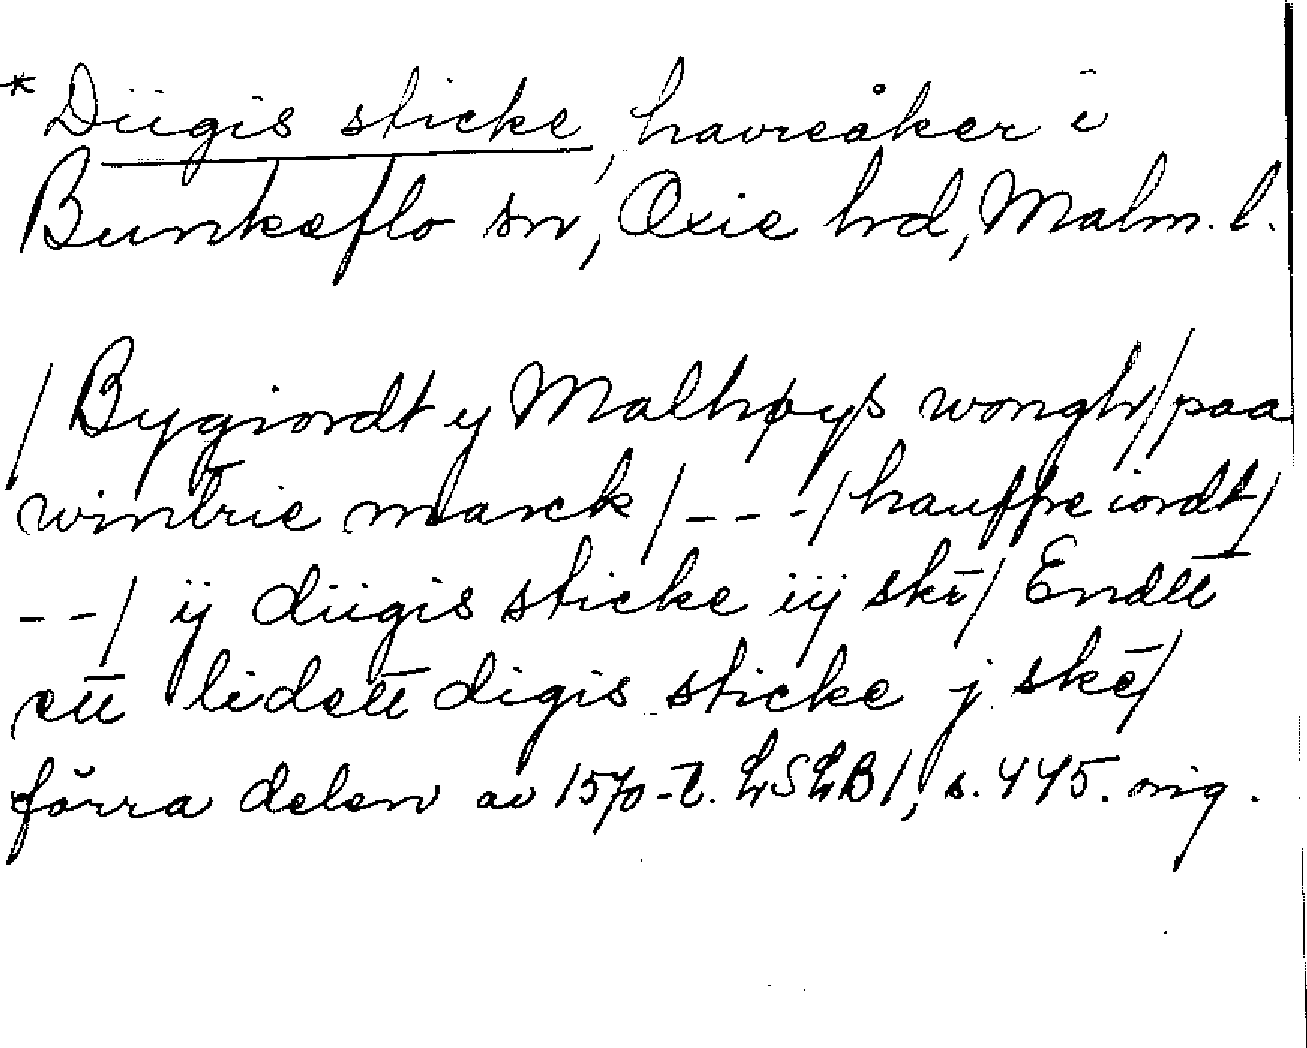 * Diigis sticke, havreåker i
Bunkeflo sn, Oxie hd, Malm. l.
/ Bygiordt y Malhøys wongh / paa
wintrie marck / - - - / hauffre iordt /
- - / ij diigis sticke iij skī / Endt̄t
ett̄ lidett̄ digis sticke j skē /
förra delen av 1570-t. LSLB 1, s. 445. orig.